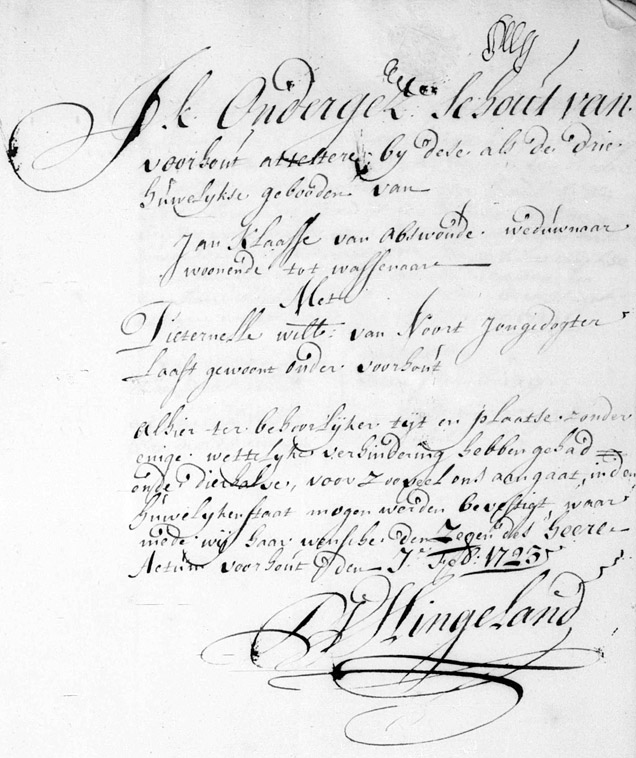 Ik Ondergesz: Schout van
voorhout attestere by dese als de drie
huwelykse gebooden van
Jan Klaasse van Abswoude weduwnaar
woonende tot wassenaar
Met
Pieternelle will: van Noort Jongedogter
laast gewoont onder voorhout
alhier ter behoorlyker tyt en plaatse zonder
enige wettelyke verhindering hebben gehad
ende dierhalve, voor zoo veel ons aangaat, in den
huwelyken staat mogen werden bevestigt, waar
mede wy haar wensche den Zegen des heere
Actum voorhout den 1725
Slingeland